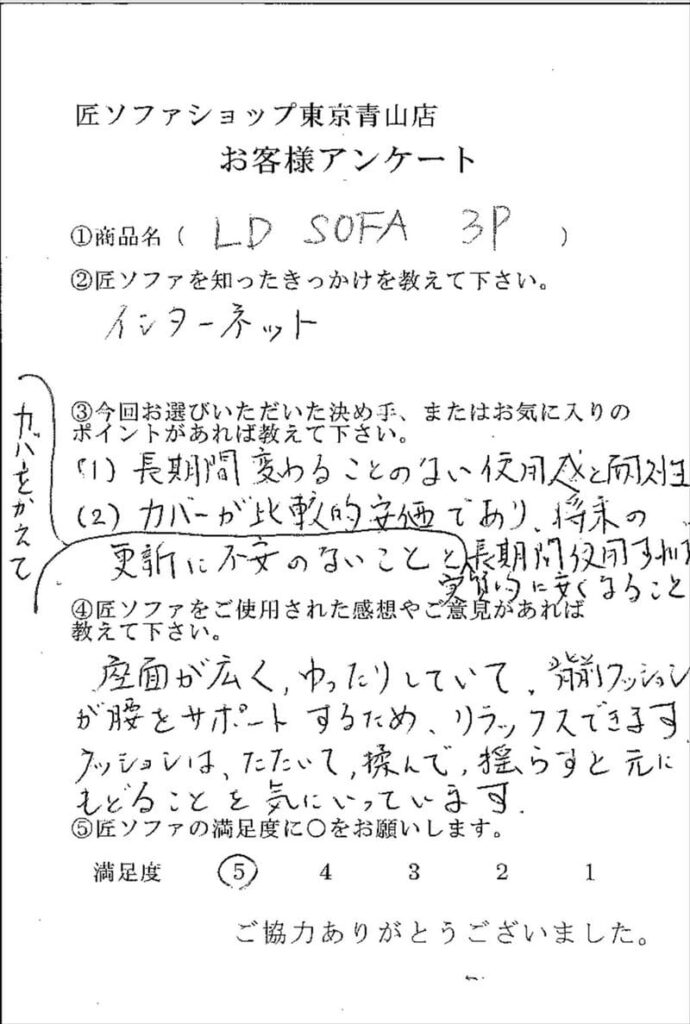 匠ソファショップ東京青山店
お客様アンケート
①商品名( LD SOFA 3P )
②匠ソファを知ったきっかけを教えて下さい。
インターネット
③今回お選びいただいた決め手、またはお気に入りの
ポイントがあれば教えて下さい。
(1) 長期間変わることのない使用感と耐久性
(2) カバーが比較的安価であり、将来の
更新に不安のないことと長期間使用すれば
カバーをかえて
実質的に安くなること
④匠ソファをご使用された感想やご意見があれば
教えて下さい。
座面が広く、ゆったりしていて、背前クッション
が腰をサポートするため、リラックスできます
クッションは、たたいて、揉んで、揺らすと元に
もどることを気にいっています.
⑤匠ソファの満足度に○をお願いします。
満足度 5 4 3 2 1
ご協力ありがとうございました。